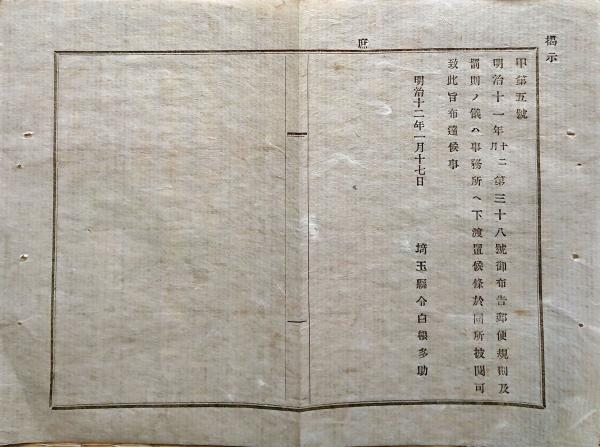 揭示
庶
甲第五號
明治十一年十二月第三十八號御布告郵便規則及
罰則ノ儀ハ事務所ヘ下渡置候條於同所披閲可
致此旨布達候事
明治十二年一月十七日
埼玉縣令白根多助